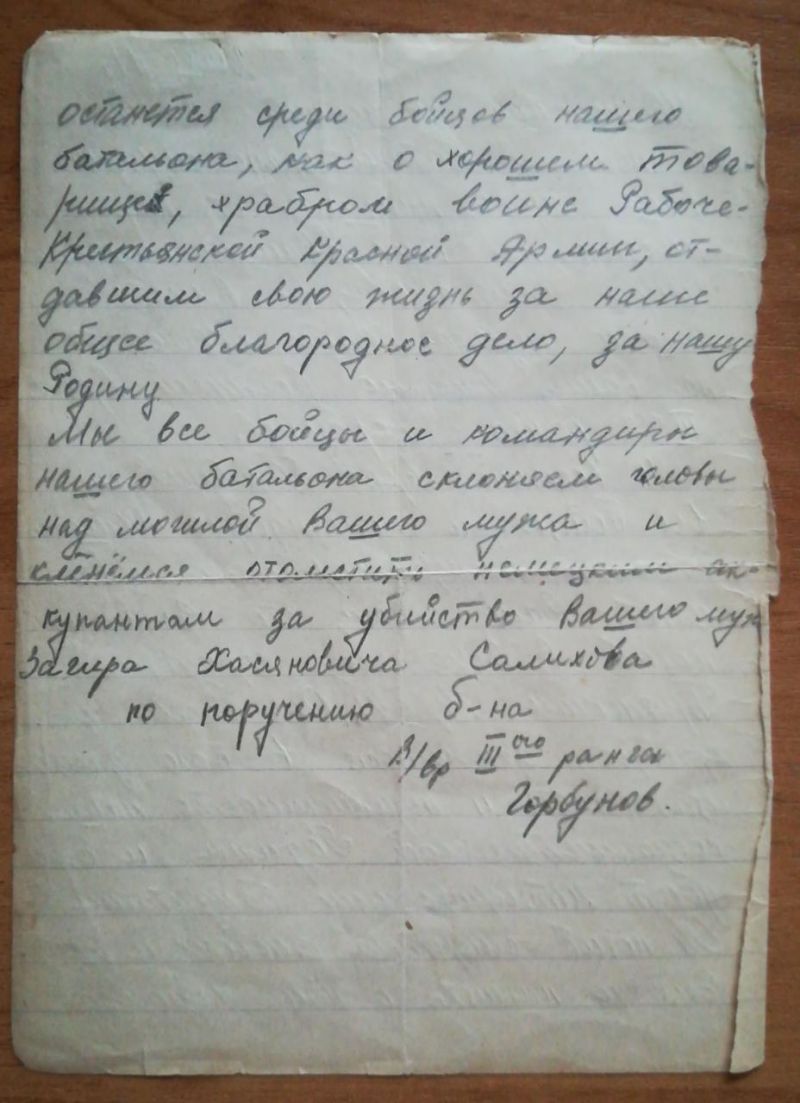 останется среди бойцов нашего
батальона, как о хорошем това-
рище, храбром воине Рабоче-
Крестьянской Красной Армии, от-
давшим свою жизнь за наше
общее благородное дело, за нашу
Родину
Мы все бойцы и командиры
нашего батальона склоняем головы
над могилой Вашего мужа и
клянёмся отомстить немецким ок-
купантам за убийство Вашего мужа
Загира Хасяновича Салихова
по поручению б-на
В/вр III его ранга
Горбунов.